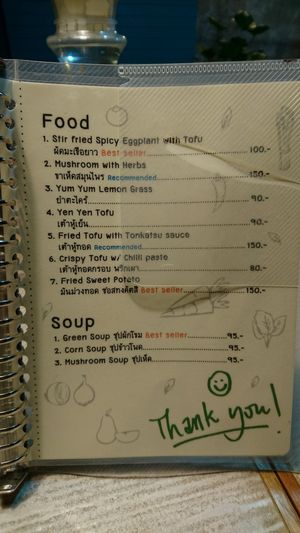 Food
1. Stir fried Spicy Eggplant with Tofu
ผัดมะเขือยาว Best seller 100.-
2. Mushroom with Herbs
ชาเห็ดสมุนไพร Recommended 150.-
3. Yum Yum Lemon Grass
ยำตะไคร้ 90.-
4. Yen Yen Tofu
เต้าหู้เย็น 90.-
5. Fried Tofu with Tonkatsu sauce
เต้าหู้ทอด Recommended 150.-
6. Crispy Tofu w/ Chilli paste
เต้าหู้ทอดกรอบ พริกเผา 80.-
7. Fried Sweet Potato
มันม่วงทอด ซอสทงคัตสึ Best seller 150.-
Soup
1. Green Soup ซุปผักโขม Best seller 95.-
2. Corn Soup ซุปข้าวโพด 95.-
3. Mushroom Soup ซุปเห็ด 95.-
Thank you!